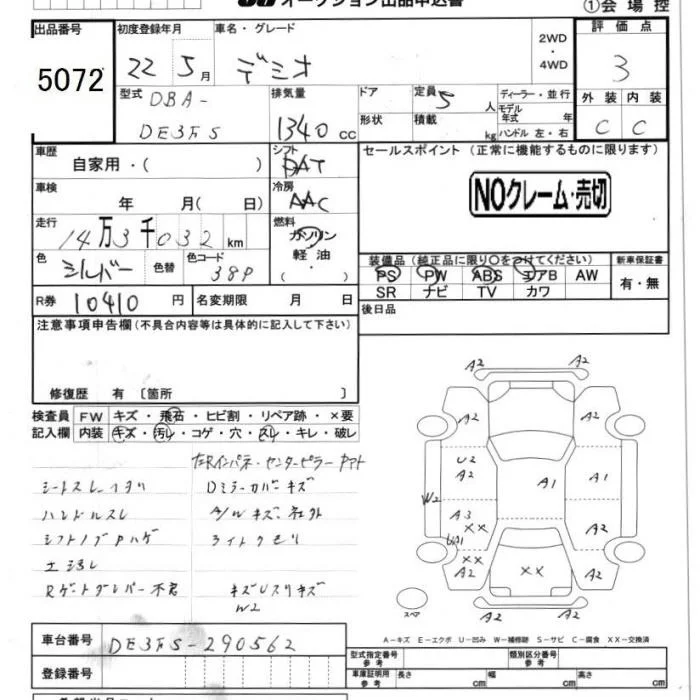 オークション出品申込書 ①会場控
出品番号 初度登録年月 車名・グレード 評価点
5072 22 5月 デミオ 2WD・4WD 3
型式 DBA-DE3FS 排気量 1340cc ドア 定員 5人 ディーラー・並行 外装 内装
形状 積載 kg モデル年式 年 ハンドル 左・右 C C
車歴 自家用・( ) シフト AT セールスポイント (正常に機能するものに限ります)
車検 年 月( 日) 冷房 AAC NOクレーム・売切
走行 14万3千032km 燃料 ガソリン
軽油
( ・ )
色 シルバー 色替 色コード 38P 装備品 (純正品に限り○をつけてください) 新車保証書
PS PW ABS エアB AW 有・無
SR ナビ TV カワ
R券 10410円 名変期限 月 日 後日品
注意事項申告欄(不具合内容等は具体的に記入して下さい)
修復歴 有 〔箇所 〕
検査員 FW キズ・飛石・ヒビ割・リペア跡・×要
記入欄 内装 キズ・汚れ・コゲ・穴・スレ・キレ・破レ
左Rインパネ・センターピラー
シートスレ Dミラーカバーキズ
ハンドルスレ A/Wキズ 社外
シフトノブPハゲ ライトクモリ
Rゲートダンパー不良 キズUスリキズ
W2
A2 A2
A2 A2
U2
A2 A1 A1
W2
A3 ×× A2
××
A2 ×× A2
A2 A2
スペア
A-キズ E-エクボ U-凹み W-補修跡 S-サビ C-腐食 XX-交換済
車台番号 DE3FS-290562 型式指定番号 参考 類別区分番号 参考
登録番号 車庫証明用 参考 長さ cm 幅 cm 高さ cm